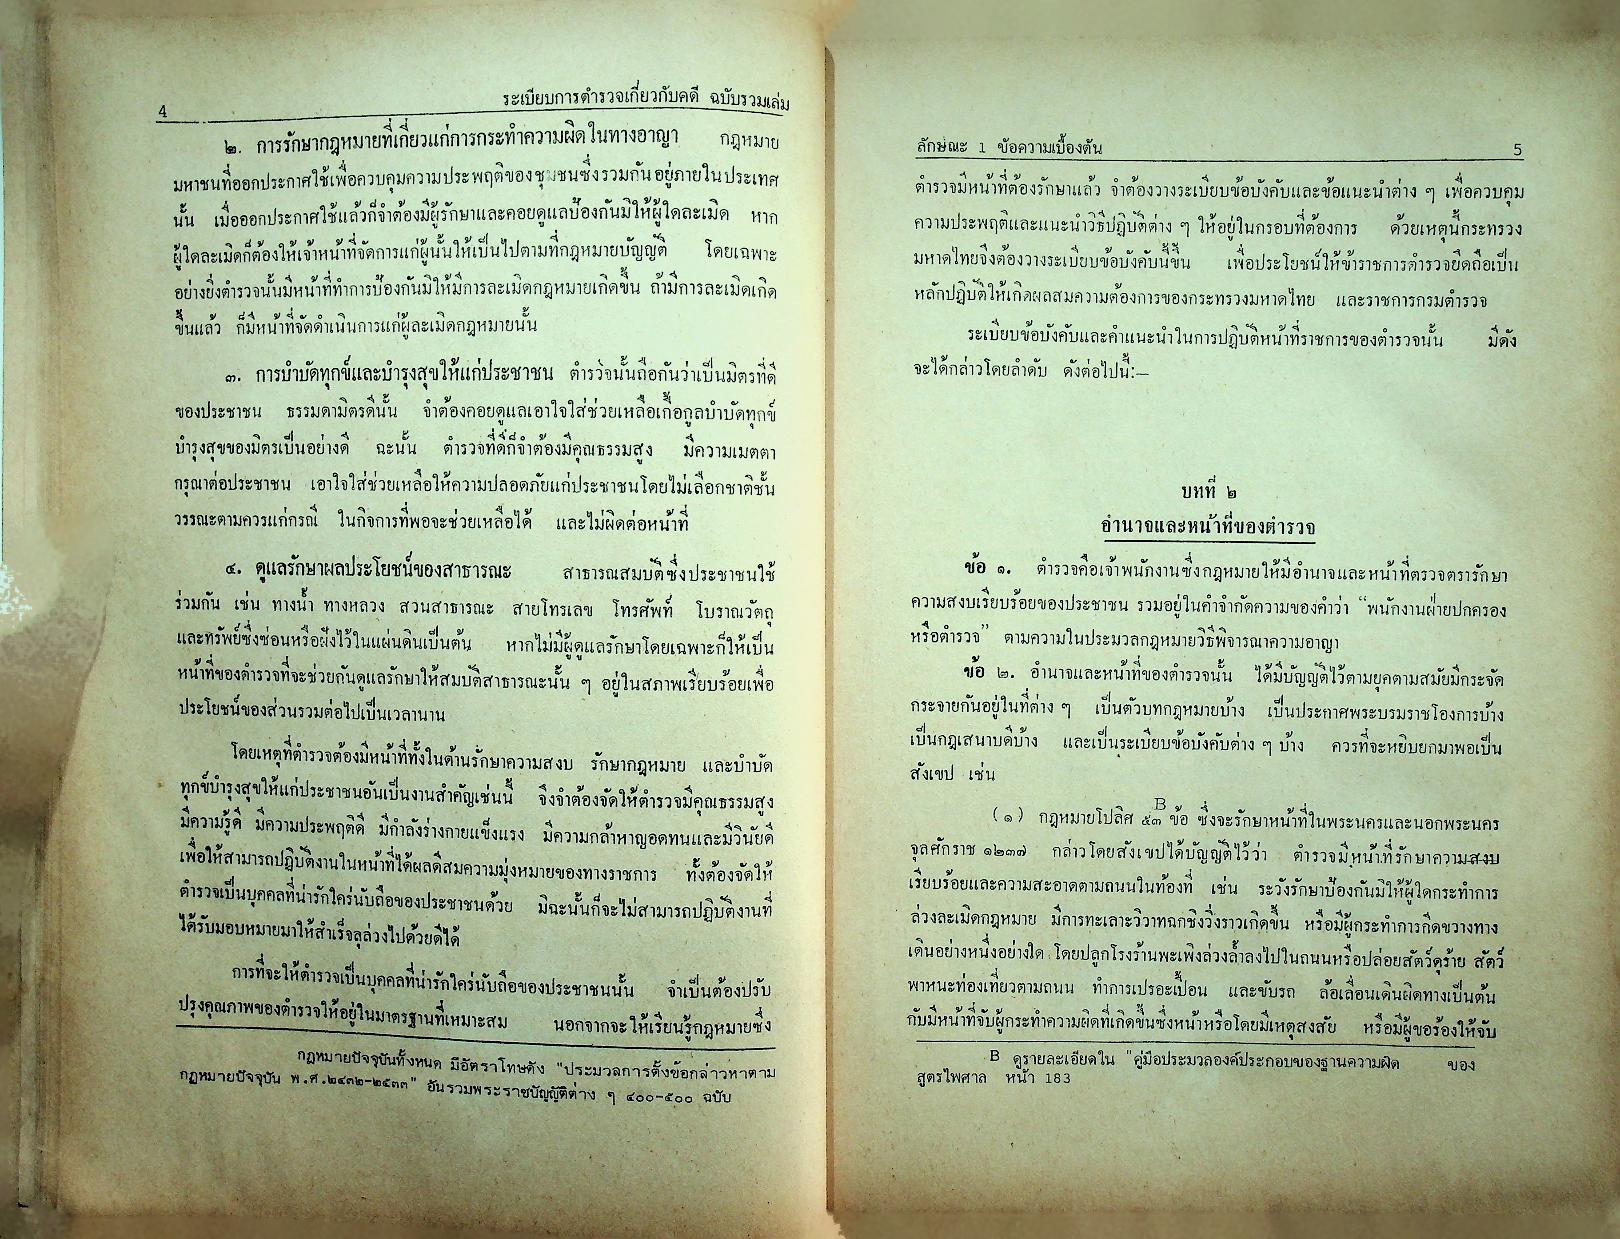 4
ระเบียบการตำรวจเกี่ยวกับคดี ฉบับรวมเล่ม
๒. การรักษากฎหมายที่เกี่ยวแก่การกระทำความผิดในทางอาญา กฎหมาย
มหาชนที่ออกประกาศใช้เพื่อควบคุมความประพฤติของชุมชนซึ่งรวมกันอยู่ภายในประเทศ
นั้น เมื่อออกประกาศใช้แล้วก็จำต้องมีผู้รักษาและคอยดูแลป้องกันมิให้ผู้ใดละเมิด หาก
ผู้ใดละเมิดก็ต้องให้เจ้าหน้าที่จัดการแก่ผู้นั้นให้เป็นไปตามที่กฎหมายบัญญัติ โดยเฉพาะ
อย่างยิ่งตำรวจนั้นมีหน้าที่ทำการป้องกันมิให้มีการละเมิดกฎหมายเกิดขึ้น ถ้ามีการละเมิดเกิด
ขึ้นแล้ว ก็มีหน้าที่จัดดำเนินการแก่ผู้ละเมิดกฎหมายนั้น
๓. การบำบัดทุกข์และบำรุงสุขให้แก่ประชาชน ตำรวจนั้นถือกันว่าเป็นมิตรที่ดี
ของประชาชน ธรรมดามิตรดีนั้น จำต้องคอยดูแลเอาใจใส่ช่วยเหลือเกื้อกูลบำบัดทุกข์
บำรุงสุขของมิตรเป็นอย่างดี ฉะนั้น ตำรวจที่ดีก็จำต้องมีคุณธรรมสูง มีความเมตตา
กรุณาต่อประชาชน เอาใจใส่ช่วยเหลือให้ความปลอดภัยแก่ประชาชนโดยไม่เลือกชาติชั้น
วรรณะตามควรแก่กรณี ในกิจการที่พอจะช่วยเหลือได้ และไม่ผิดต่อหน้าที่
๔. ดูแลรักษาผลประโยชน์ของสาธารณะ สาธารณสมบัติซึ่งประชาชนใช้
ร่วมกัน เช่น ทางน้ำ ทางหลวง สวนสาธารณะ สายโทรเลข โทรศัพท์ โบราณวัตถุ
และทรัพย์ซึ่งซ่อนหรือฝังไว้ในแผ่นดินเป็นต้น หากไม่มีผู้ดูแลรักษาโดยเฉพาะก็ให้เป็น
หน้าที่ของตำรวจที่จะช่วยกันดูแลรักษาให้สมบัติสาธารณะนั้น ๆ อยู่ในสภาพเรียบร้อยเพื่อ
ประโยชน์ของส่วนรวมต่อไปเป็นเวลานาน
โดยเหตุที่ตำรวจต้องมีหน้าที่ทั้งในด้านรักษาความสงบ รักษากฎหมาย และบำบัด
ทุกข์บำรุงสุขให้แก่ประชาชนอันเป็นงานสำคัญเช่นนี้ จึงจำต้องจัดให้ตำรวจมีคุณธรรมสูง
มีความรู้ดี มีความประพฤติดี มีกำลังร่างกายแข็งแรง มีความกล้าหาญอดทนและมีวินัยดี
เพื่อให้สามารถปฏิบัติงานในหน้าที่ได้ผลดีสมความมุ่งหมายของทางราชการ ทั้งต้องจัดให้
ตำรวจเป็นบุคคลที่น่ารักใคร่นับถือของประชาชนด้วย มิฉะนั้นก็จะไม่สามารถปฏิบัติงานที่
ได้รับมอบหมายมาให้สำเร็จลุล่วงไปด้วยดีได้
การที่จะให้ตำรวจเป็นบุคคลที่น่ารักใคร่นับถือของประชาชนนั้น จำเป็นต้องปรับ
ปรุงคุณภาพของตำรวจให้อยู่ในมาตรฐานที่เหมาะสม นอกจากจะให้เรียนรู้กฎหมายซึ่ง
กฎหมายปัจจุบันทั้งหมด มีอัตราโทษดัง "ประมวลการตั้งข้อกล่าวหาตาม
กฎหมายปัจจุบัน พ.ศ.๒๔๓๒-๒๕๓๓" อันรวมพระราชบัญญัติต่าง ๆ ๔๐๐-๕๐๐ ฉบับ
ลักษณะ 1 ข้อความเบื้องต้น
5
ตำรวจมีหน้าที่ต้องรักษาแล้ว จำต้องวางระเบียบข้อบังคับและข้อแนะนำต่าง ๆ เพื่อควบคุม
ความประพฤติและแนะนำวิธีปฏิบัติต่าง ๆ ให้อยู่ในกรอบที่ต้องการ ด้วยเหตุนี้กระทรวง
มหาดไทยจึงต้องวางระเบียบข้อบังคับนี้ขึ้น เพื่อประโยชน์ให้ข้าราชการตำรวจยึดถือเป็น
หลักปฏิบัติให้เกิดผลสมความต้องการของกระทรวงมหาดไทย และราชการกรมตำรวจ
ระเบียบข้อบังคับและคำแนะนำในการปฏิบัติหน้าที่ราชการของตำรวจนั้น มีดัง
จะได้กล่าวโดยลำดับ ดังต่อไปนี้:—
บทที่ ๒
อำนาจและหน้าที่ของตำรวจ
ข้อ ๑. ตำรวจคือเจ้าพนักงานซึ่งกฎหมายให้มีอำนาจและหน้าที่ตรวจตรารักษา
ความสงบเรียบร้อยของประชาชน รวมอยู่ในคำจำกัดความของคำว่า “พนักงานฝ่ายปกครอง
หรือตำรวจ” ตามความในประมวลกฎหมายวิธีพิจารณาความอาญา
ข้อ ๒. อำนาจและหน้าที่ของตำรวจนั้น ได้มีบัญญัติไว้ตามยุคตามสมัยมีกระจัด
กระจายกันอยู่ในที่ต่าง ๆ เป็นตัวบทกฎหมายบ้าง เป็นประกาศพระบรมราชโองการบ้าง
เป็นกฎเสนาบดีบ้าง และเป็นระเบียบข้อบังคับต่าง ๆ บ้าง ควรที่จะหยิบยกมาพอเป็น
สังเขป เช่น
(๑) กฎหมายโปลิศ ๕๓ B ข้อ ซึ่งจะรักษาหน้าที่ในพระนครและนอกพระนคร
จุลศักราช ๑๒๓๗ กล่าวโดยสังเขปได้บัญญัติไว้ว่า ตำรวจมีหน้าที่รักษาความสงบ
เรียบร้อยและความสะอาดตามถนนในท้องที่ เช่น ระวังรักษาป้องกันมิให้ผู้ใดกระทำการ
ล่วงละเมิดกฎหมาย มีการทะเลาะวิวาทฉกชิงวิ่งราวเกิดขึ้น หรือมีผู้กระทำการกีดขวางทาง
เดินอย่างหนึ่งอย่างใด โดยปลูกโรงร้านพะเพิงล่วงล้ำลงไปในถนนหรือปล่อยสัตว์ดุร้าย สัตว์
พาหนะท่องเที่ยวตามถนน ทำการเปรอะเปื้อน และขับรถ ล้อเลื่อนเดินผิดทางเป็นต้น
กับมีหน้าที่จับผู้กระทำความผิดที่เกิดขึ้นซึ่งหน้าหรือโดยมีเหตุสงสัย หรือมีผู้ขอร้องให้จับ
B ดูรายละเอียดใน "คู่มือประมวลองค์ประกอบของฐานความผิด ของ
สูตรไพศาล หน้า 183